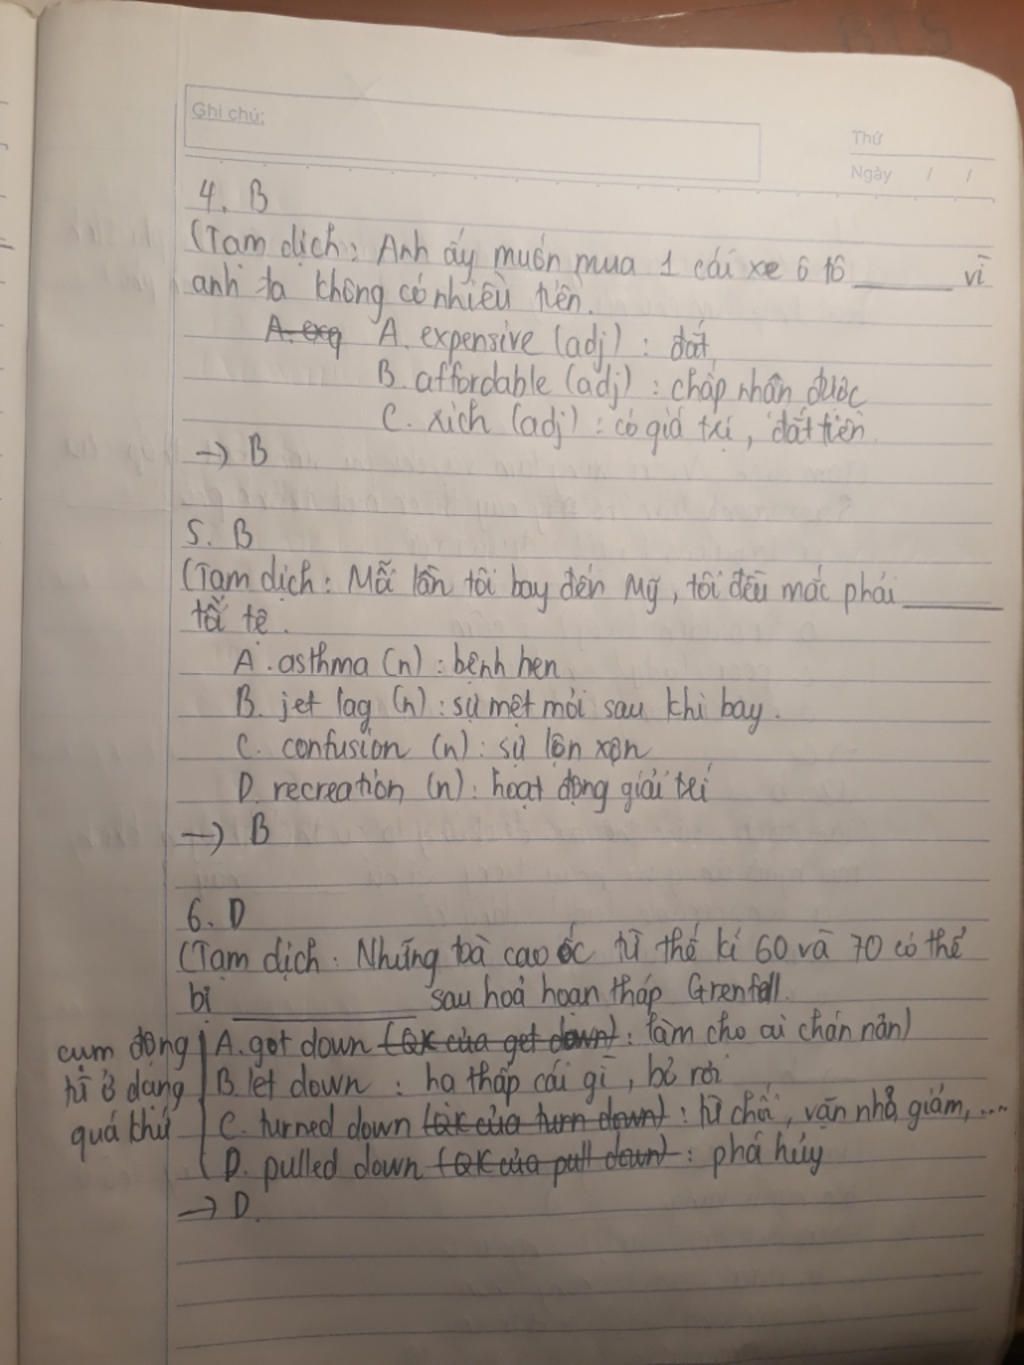 BTS
Ghi chú:
Thứ
Ngày / /
4. B
(Tạm dịch: Anh ấy muốn mua 1 cái xe ô tô ______ vì
anh ta không có nhiều tiền.
A. exq A. expensive (adj) : đắt
B. affordable (adj) : chấp nhận được
C. rich (adj) : có giá trị, đắt tiền
→ B
5. B
(Tạm dịch: Mỗi lần tôi bay đến Mỹ, tôi đều mắc phải ______
tồi tệ.
A. asthma (n) : bệnh hen
B. jet lag (n) : sự mệt mỏi sau khi bay.
C. confusion (n) : sự lộn xộn
D. recreation (n) : hoạt động giải trí
→ B
6. D
(Tạm dịch: Những toà cao ốc từ thế kỉ 60 và 70 có thể
bị ______ sau hoả hoạn tháp Grenfell.
cụm động
từ ở dạng
quá khứ
A. got down (QK của get down) : làm cho ai chán nản)
B. let down : hạ thấp cái gì, bỏ rơi
C. turned down (QK của turn down) : từ chối, vặn nhỏ giảm, ....
D. pulled down (QK của pull down) : phá hủy
→ D.